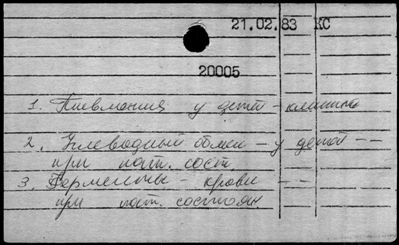 21.02.83 КС
20005
1. Пневмония у детей - клиника
2. Углеводный обмен - у детей --
при пат. сост
3. Ферменты - крови --
при пат. состоян